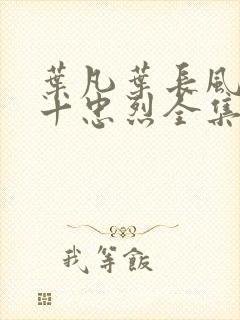 葉凡葉長風
十忠烈全集
我等飯